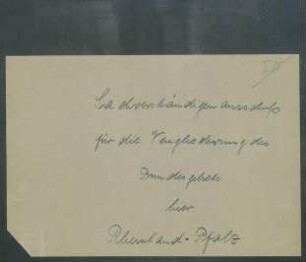 Sachverständigenausschuß
für die Neugliederung des
Bundesgebiets
hier
Rheinland-Pfalz